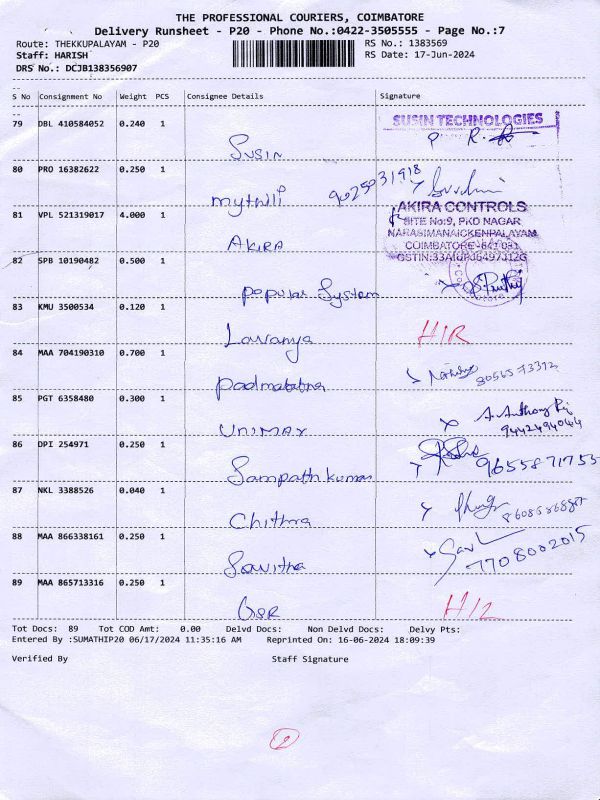 THE PROFESSIONAL COURIERS, COIMBATORE
Delivery Runsheet - P20 - Phone No.:0422-3505555 - Page No.:7
Route: THEKKUPALAYAM - P20 RS No.: 1383569
Staff: HARISH RS Date: 17-Jun-2024
DRS No.: DCJB138356907
S No Consignment No Weight PCS Consignee Details Signature
79 DBL 410584052 0.240 1 SUSIN TECHNOLOGIES
Susin
80 PRO 16382622 0.250 1
mythili 9025031918
81 VPL 521319017 4.000 1 AKIRA CONTROLS
SITE No:9, PKD NAGAR
NARASIMANAICKENPALAYAM
Akira COIMBATORE-641 031
82 SPB 10190482 0.500 1
Popular System
83 KMU 3500534 0.120 1
Lavanya H/R
84 MAA 704190310 0.700 1
Padmabatna 8056573372
85 PGT 6358480 0.300 1
UNIMAX A. Anthony 9442494044
86 DPI 254971 0.250 1
Sampath kumar 9655871755
87 NKL 3388526 0.040 1
Chithra
88 MAA 866338161 0.250 1
Savitha 7708002015
89 MAA 865713316 0.250 1
GSR H/R
Tot Docs: 89 Tot COD Amt: 0.00 Delvd Docs: Non Delvd Docs: Delvy Pts:
Entered By :SUMATHIP20 06/17/2024 11:35:16 AM Reprinted On: 16-06-2024 18:09:39
Verified By Staff Signature
2